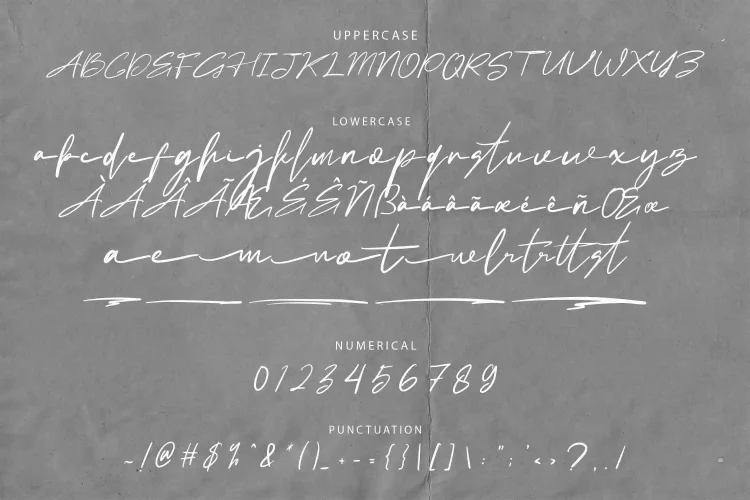 UPPERCASE
ABCDEFGHIJKLMNOPQRSTUVWXYZ
LOWERCASE
abcdefghijklmnopqrstuvwxyz
ÀÁÂÃÆÉÊÑßàáâãæéêñŒœ
UPPERCASE
NUMERICAL
0123456789
PUNCTUATION
~!@#$%^&*()_+-={}|[]\:";'<>?,./